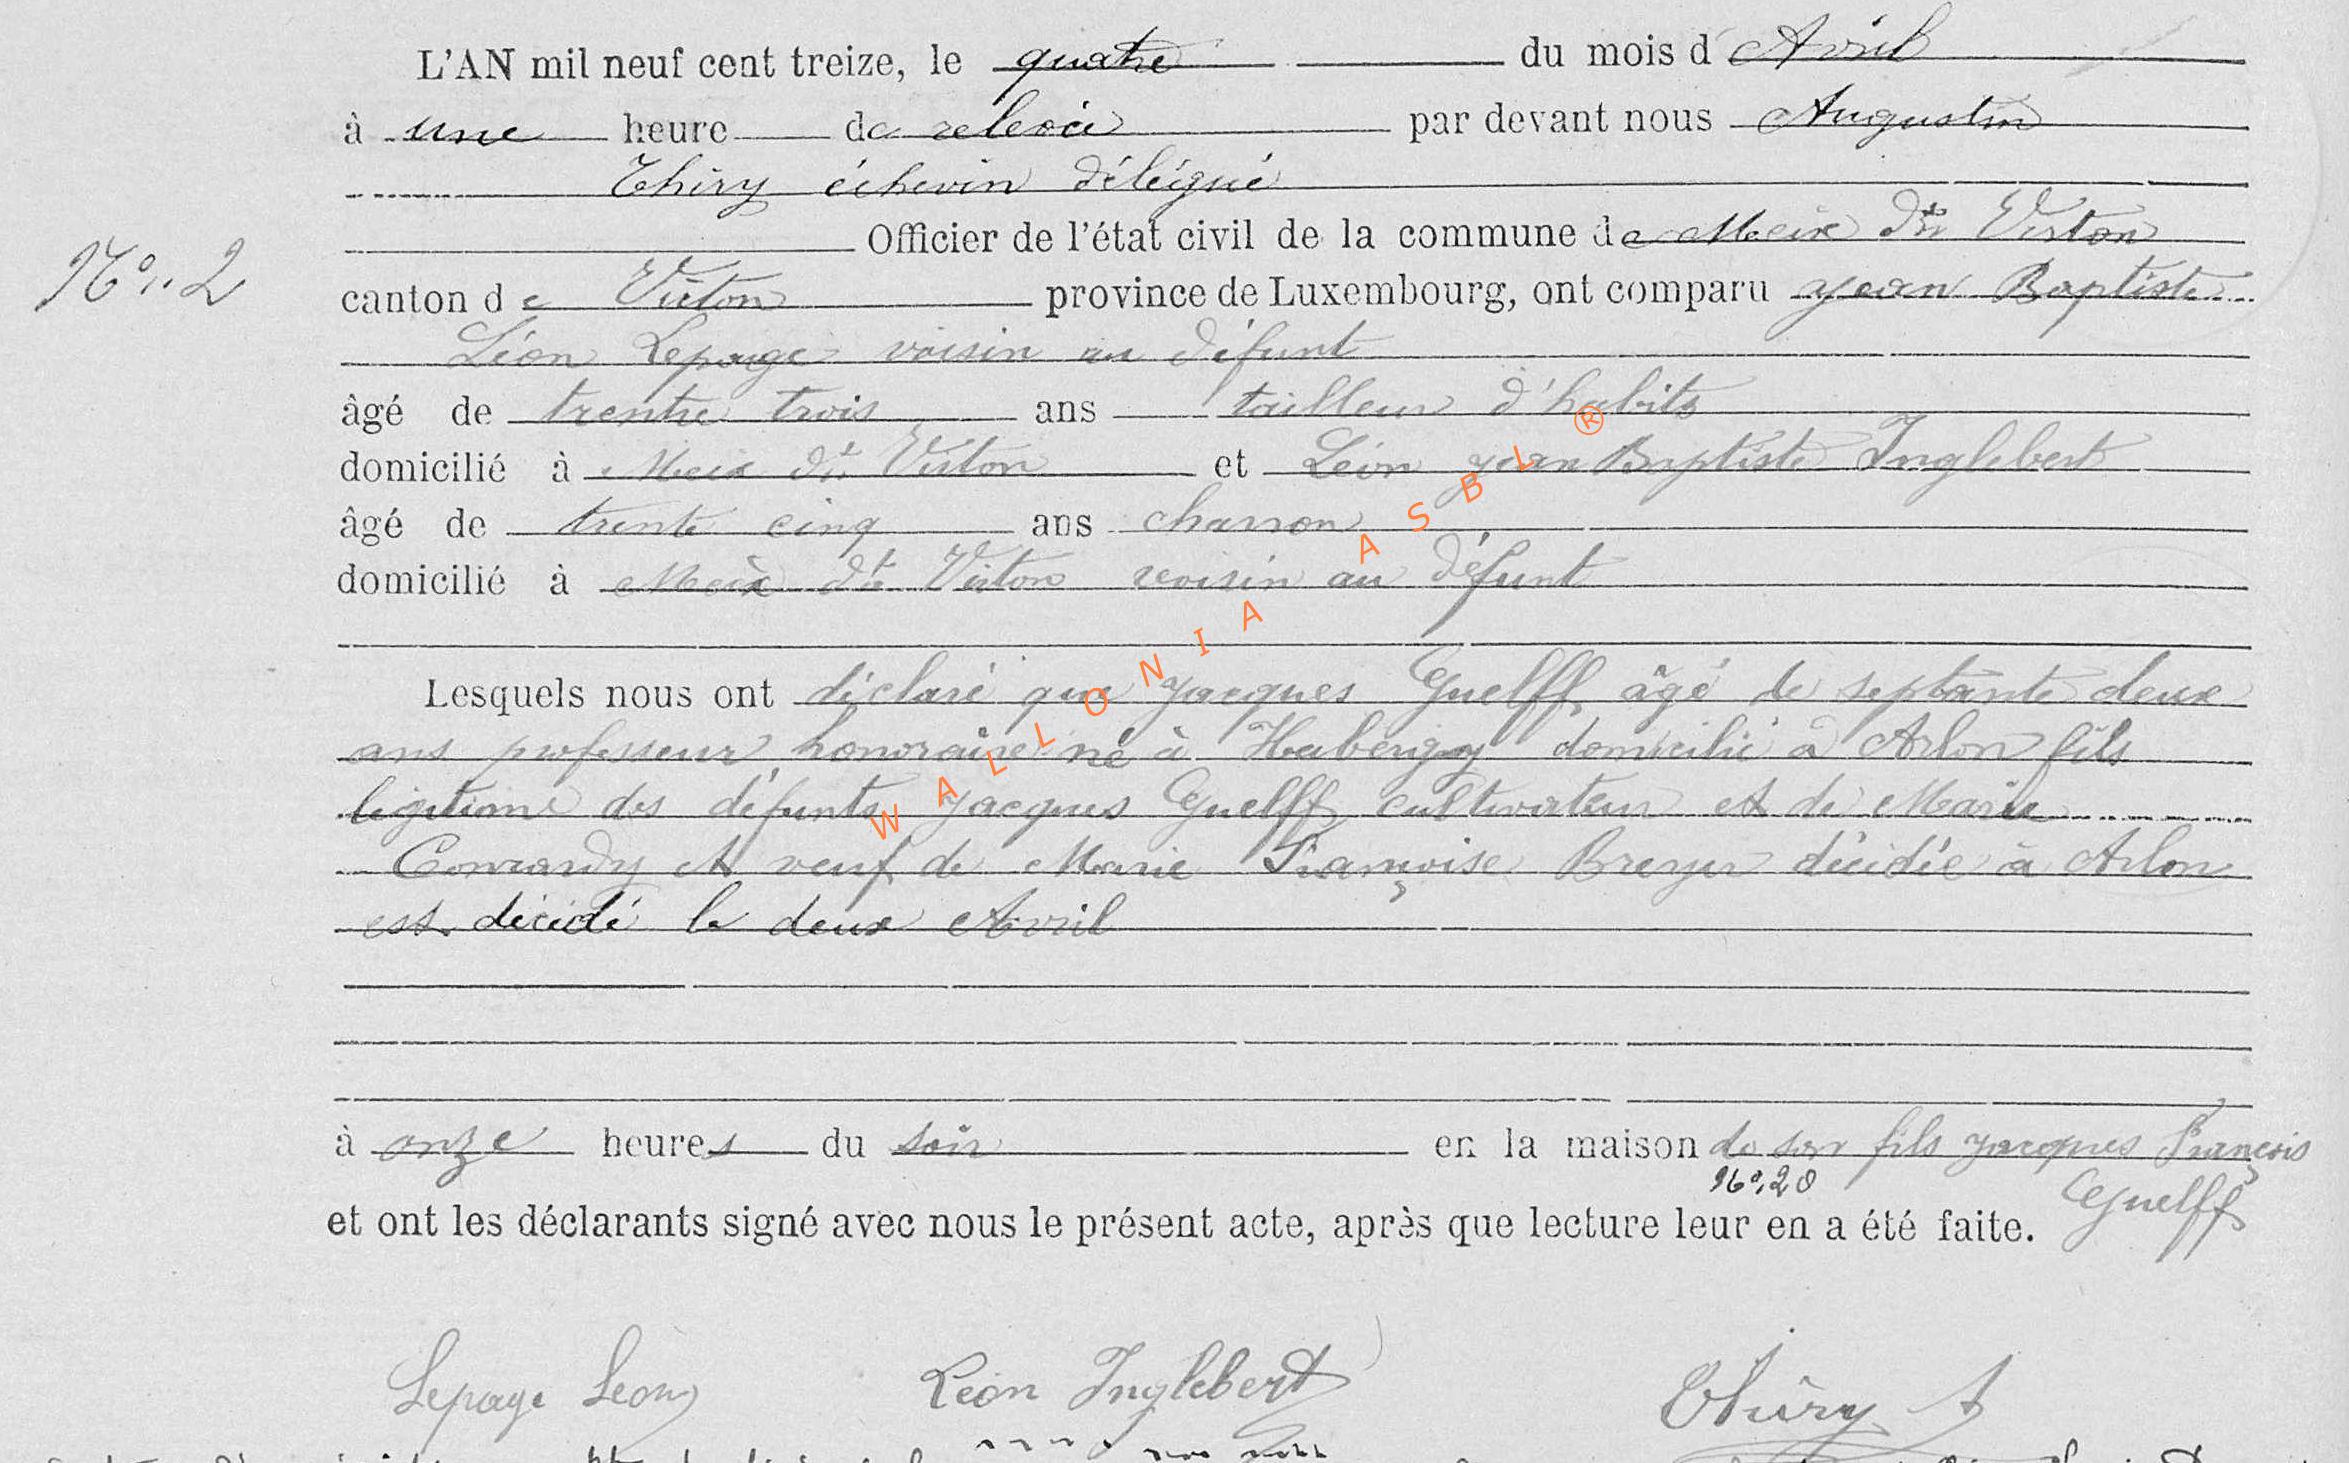 L'AN mil neuf cent treize, le quatre du mois d'Avril
à une heure de relevée par devant nous Augustin
Thiry échevin délégué
Officier de l'état civil de la commune de Meix dt Virton
N° 2
canton de Virton province de Luxembourg, ont comparu Jean Baptiste
Léon Lepage voisin au défunt
âgé de trente trois ans tailleur d'habits
domicilié à Meix dt Virton et Léon Jean Baptiste Inglebert
âgé de trente cinq ans charron
domicilié à Meix dt Virton voisin au défunt
Lesquels nous ont déclaré que Jacques Guelff âgé de septante deux
ans professeur honoraire né à Habergy domicilié à Arlon fils
légitime des défunts Jacques Guelff cultivateur et de Marie
Conrardy et veuf de Marie Françoise Breyer décédée à Arlon
est décédé le deux Avril
à onze heures du soir en la maison de son fils Jacques François
N° 20 Guelff
et ont les déclarants signé avec nous le présent acte, après que lecture leur en a été faite.
Lepage Léon Léon Inglebert Thiry A
WALLONIA ASBL ®